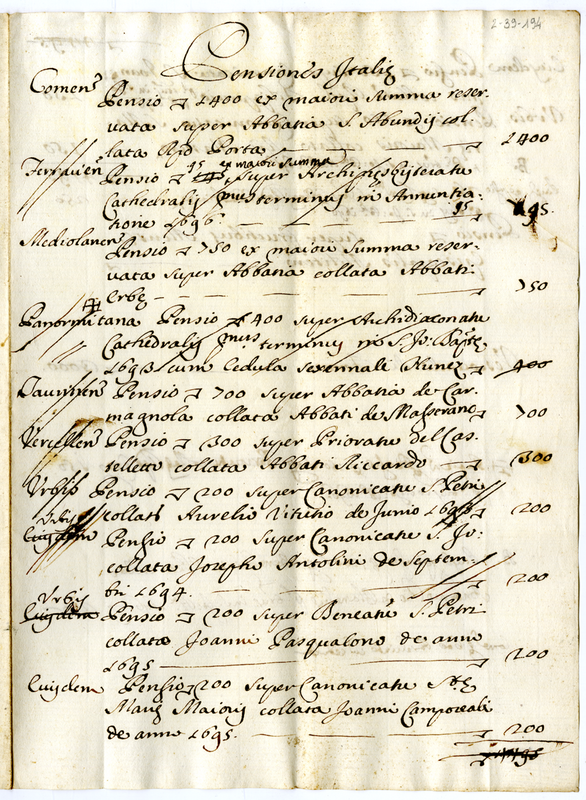 2-39-194
Pensiones Italiȩ
Comens̃ Pensio ⁊ 1400 ex maiori summa reser-
vata super Abbatia S. Abundij col-
lata Porta ⁊ 1400
95 ex maiori summa
Pensio ⁊ super Archipresbiteratu
Cathedralis pmus terminus in Annuntia-
tione 1696 95 ⁊ 95
Mediolanen̄ Pensio ⁊ 750 ex maiori summa reser-
vata super Abbatia collata Abbati
Erbȩ ⁊ 750
Panormitana Pensio ⁊ 400 super Archidiaconatu
Cathedralis pmus terminus in S. Jo: Bap̃tȩ
1693 cum Cedula sexennali Nunez ⁊ 400
Taurinen̄ Pensio ⁊ 700 super Abbatia de Car-
magnola collata Abbati de Masserano ⁊ 700
Vercellen̄ Pensio ⁊ 300 super Prioratu del Cas-
telletto collata Abbati Riccardo ⁊ 300
Urbis Pensio ⁊ 200 super Canonicatu S. Petri
collats Aurelio de Junio 1693 ⁊ 200
Urbis
Eiusdem Pensio ⁊ 200 super Canonicatu S. Jo:
collata Josepho Antolini de Septem-
bri 1694. ⁊ 200
Urbis
Eiusdem Pensio ⁊ 200 super Beneatu S. Petri
collata Joanni Pasqualono de anno
1695 ⁊ 200
Eiusdem Pensio ⁊ 200 super Canonicatu Stȩ
Mariȩ Maioris collata Joanni Camporeali
de anno 1695. ⁊ 200
⁊ 4495